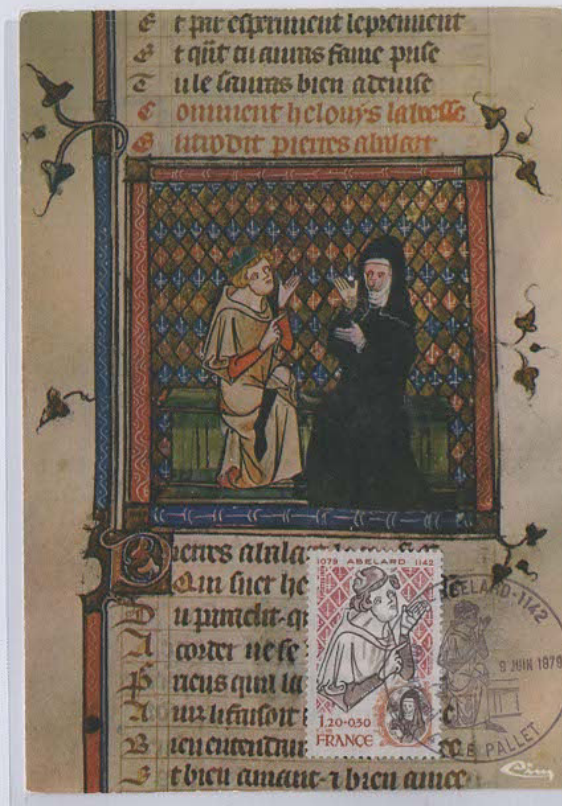 E t par esperiment le preuuent
E t tu auras fame prise
T u le sauras bien a deuise
C omment helouys labeesse
pierres abalart
Pierres abalart
Qui suer he
D u
A corder ne se
P riens quil la
A ur li faisoit
B ien
E t bien amant ⁊ bien amee
1079 ABELARD 1142
1,20+0,30
FRANCE
ABELARD-1142
9 JUIN 1979
LE PALLET
Cim